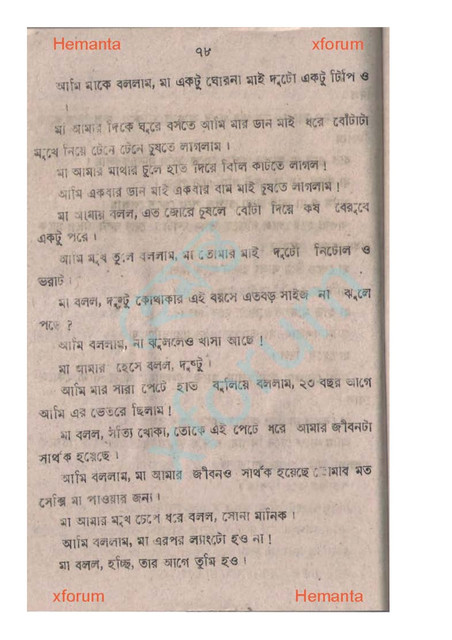 Hemanta xforum
৭৮
আমি মাকে বললাম, মা একটু ঘোরনা মাই দুটো একটু টিপি ও
।
মা আমার দিকে ঘুরে বসতে আমি মার ডান মাই ধরে বোঁটাটা
মুখে নিয়ে টেনে টেনে চুষতে লাগলাম।
মা আমার মাথার চুলে হাত দিয়ে বিলি কাটতে লাগল!
আমি একবার ডান মাই একবার বাম মাই চুষতে লাগলাম!
মা আমায় বলল, এত জোরে চুষলে বোঁটা দিয়ে কষ বেরুবে
একটু পরে।
আমি মুখ তুলে বললাম, মা তোমার মাই দুটো নিটোল ও
ভরাট।
মা বলল, দুষ্টু কোথাকার এই বয়সে এতবড় সাইজ না ঝুলে
পড়ে ?
আমি বললাম, না ঝুললেও খাসা আছে!
মা আমার হেসে বলল, দুষ্টু।
আমি মার সারা পেটে হাত বুলিয়ে বললাম, ২৩ বছর আগে
আমি এর ভেতরে ছিলাম!
মা বলল, সত্যি খোকা, তোকে এই পেটে ধরে আমার জীবনটা
সার্থক হয়েছে।
আমি বললাম, মা আমার জীবনও সার্থক হয়েছে তোমার মত
সেক্সি মা পাওয়ার জন্য।
মা আমার মুখ চেপে ধরে বলল, সোনা মানিক!
আমি বললাম, মা এরপর ল্যাংটো হও না!
মা বলল, হচ্ছি, তার আগে তুমি হও।
xforum
xforum Hemanta